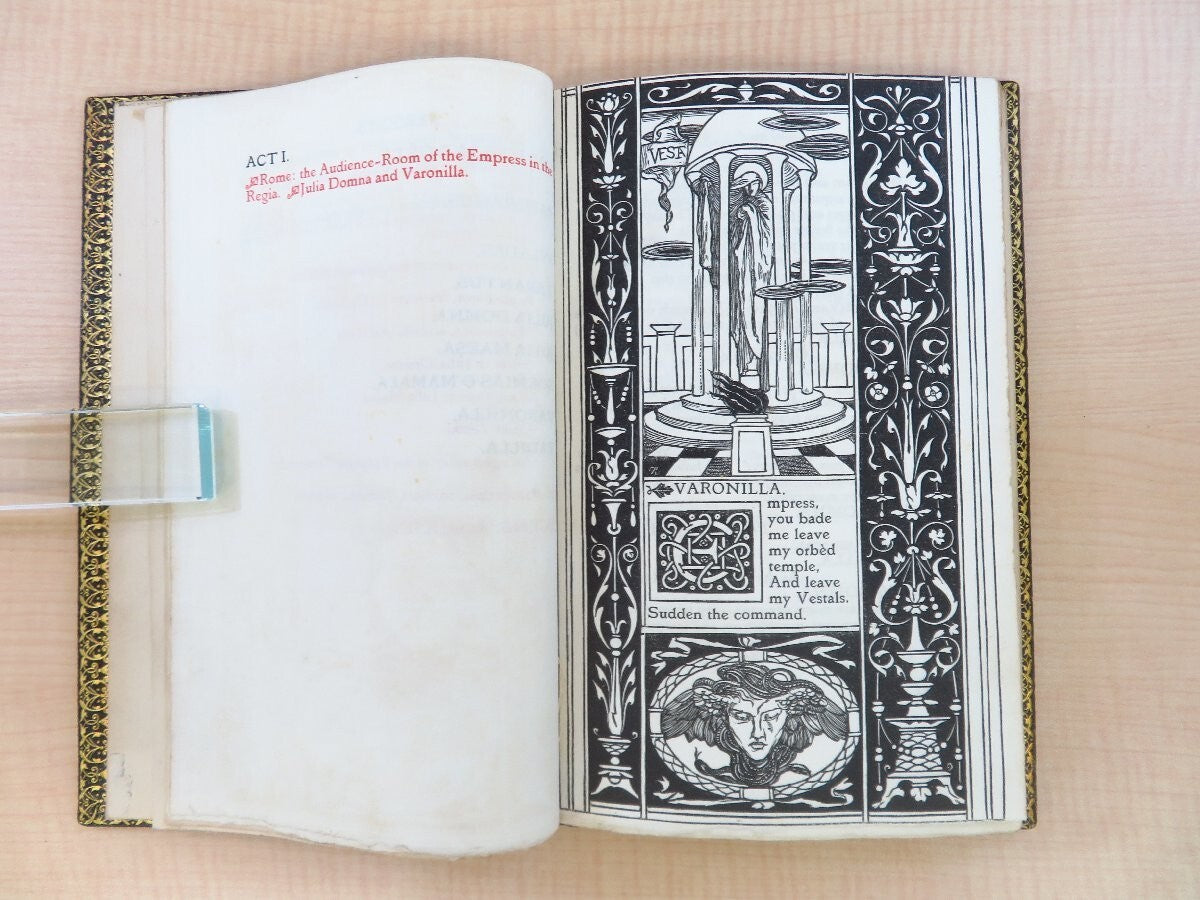 ACT I.
Rome: the Audience-Room of the Empress in the
Regia. Julia Domna and Varonilla.
VESTA
VARONILLA.
Empress,
you bade
me leave
my orbèd
temple,
And leave
my Vestals.
Sudden the command.